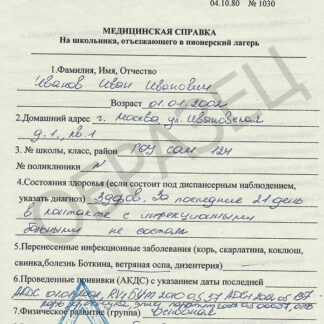 04.10.80 № 1030
МЕДИЦИНСКАЯ СПРАВКА
На школьника, отъезжающего в пионерский лагерь
1.Фамилия, Имя, Отчество
Иванов Иван Иванович
Возраст 01.01.2002
2.Домашний адрес г. Москва, ул. Ивановская
д.1, кв.1
3. № школы, класс, район ГОУ СОШ 124
№ поликлиники N
4.Состояния здоровья (если состоит под диспансерным наблюдением,
указать диагноз) Здоров. За последние 21 день
в контакте с инфекционными
больными не состоял
5.Перенесенные инфекционные заболевания (корь, скарлатина, коклюш,
свинка,болезнь Боткина, ветряная оспа, дизентерия)
6.Проведенные прививки (АКДС) с указанием даты последней
АКДС
7.Физическое развитие (группа) Основная
ОБРАЗЕЦ